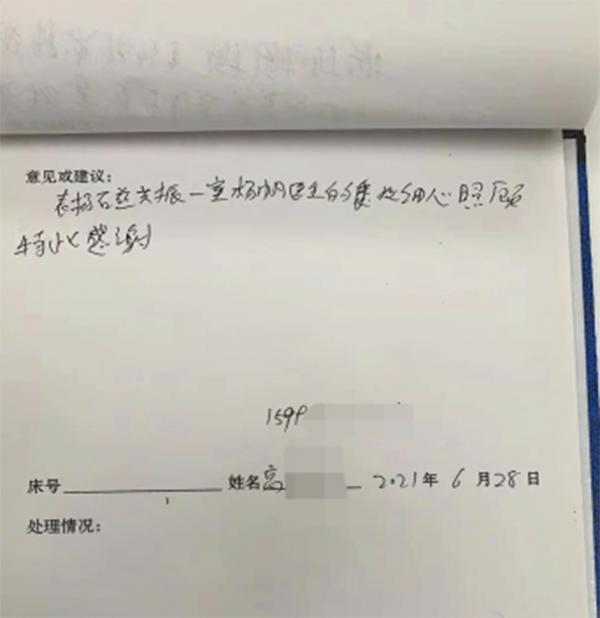 意见或建议:
表扬 核共振一室杨帆医生的 细心照顾
特此感谢
159
床号 姓名高 2021年6月28日
处理情况: